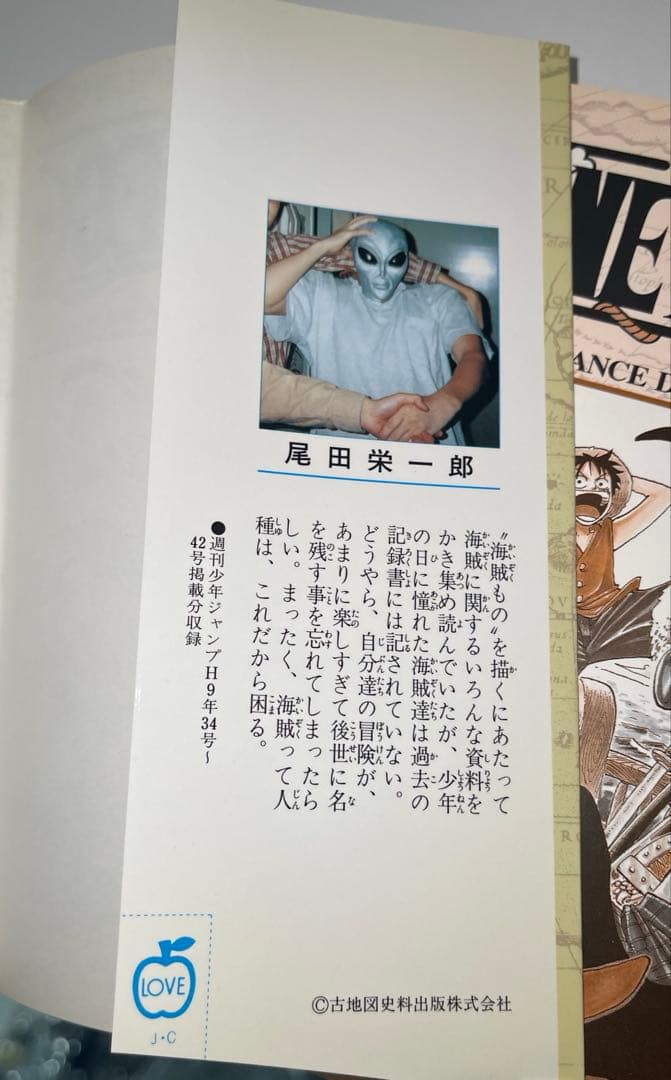 尾田栄一郎
“海賊もの”を描くにあたって
海賊に関するいろんな資料を
かき集め読んでいたが、少年
の日に憧れた海賊達は過去の
記録書には記されていない。
どうやら、自分達の冒険が、
あまりに楽しすぎて後世に名
を残す事を忘れてしまったら
しい。まったく、海賊って人
種は、これだから困る。
●週刊少年ジャンプH9年34号～
42号掲載分収録
LOVE
J・C
©古地図史料出版株式会社
NE
ANCE D